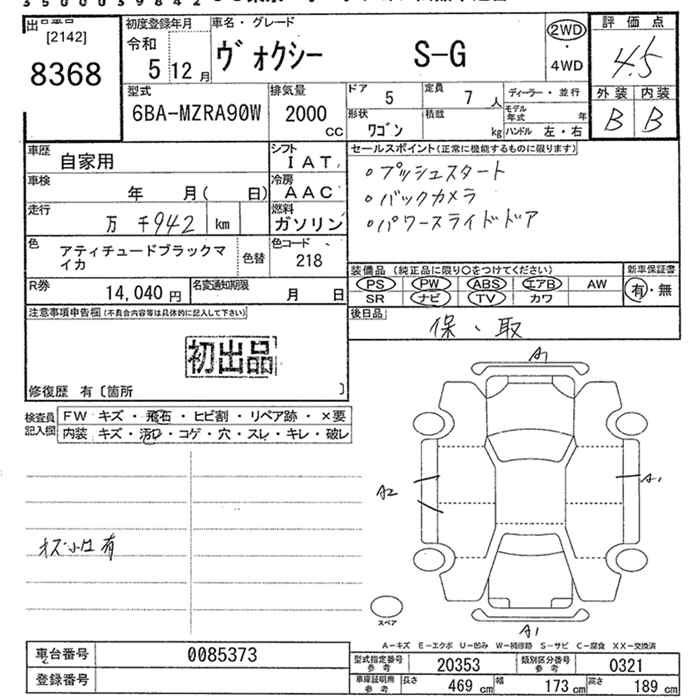 35000039842
出品番号 初度登録年月 車名・グレード 2WD 評価点
[2142] 令和 ヴォクシー S-G ・ 4.5
8368 5 12月 4WD
型式 排気量 ドア 5 定員 7 人 ディーラー・並行 外装 内装
6BA-MZRA90W 2000 cc 形状 ワゴン 積載 kg モデル年式 年 B B
ハンドル 左・右
車歴 自家用 シフト IAT セールスポイント(正常に機能するものに限ります)
車検 年 月( 日) 冷房 AAC ・プッシュスタート
・バックカメラ
走行 万 千942 km 燃料 ガソリン ・パワースライドドア
色 アティチュードブラックマイカ 色替 色コード 218
装備品(純正品に限り○をつけてください) 新車保証書
R券 14,040 円 名変通知期限 月 日 PS PW ABS エアB AW 有・無
SR ナビ TV カワ
注意事項申告欄(不具合内容等は具体的に記入して下さい) 後日品 保、取
初出品
修復歴 有〔箇所 〕
A1
検査員記入欄 FW キズ・飛石・ヒビ割・リペア跡・×要
内装 キズ・汚れ・コゲ・穴・スレ・キレ・破レ
A2 A1
有
スペア
A1
A-キズ E-エクボ U-凹み W-補修跡 S-サビ C-腐食 XX-交換済
車台番号 0085373 型式指定番号 参考 20353 類別区分番号 参考 0321
登録番号 車庫証明用 参考 長さ 469 cm 幅 173 cm 高さ 189 cm